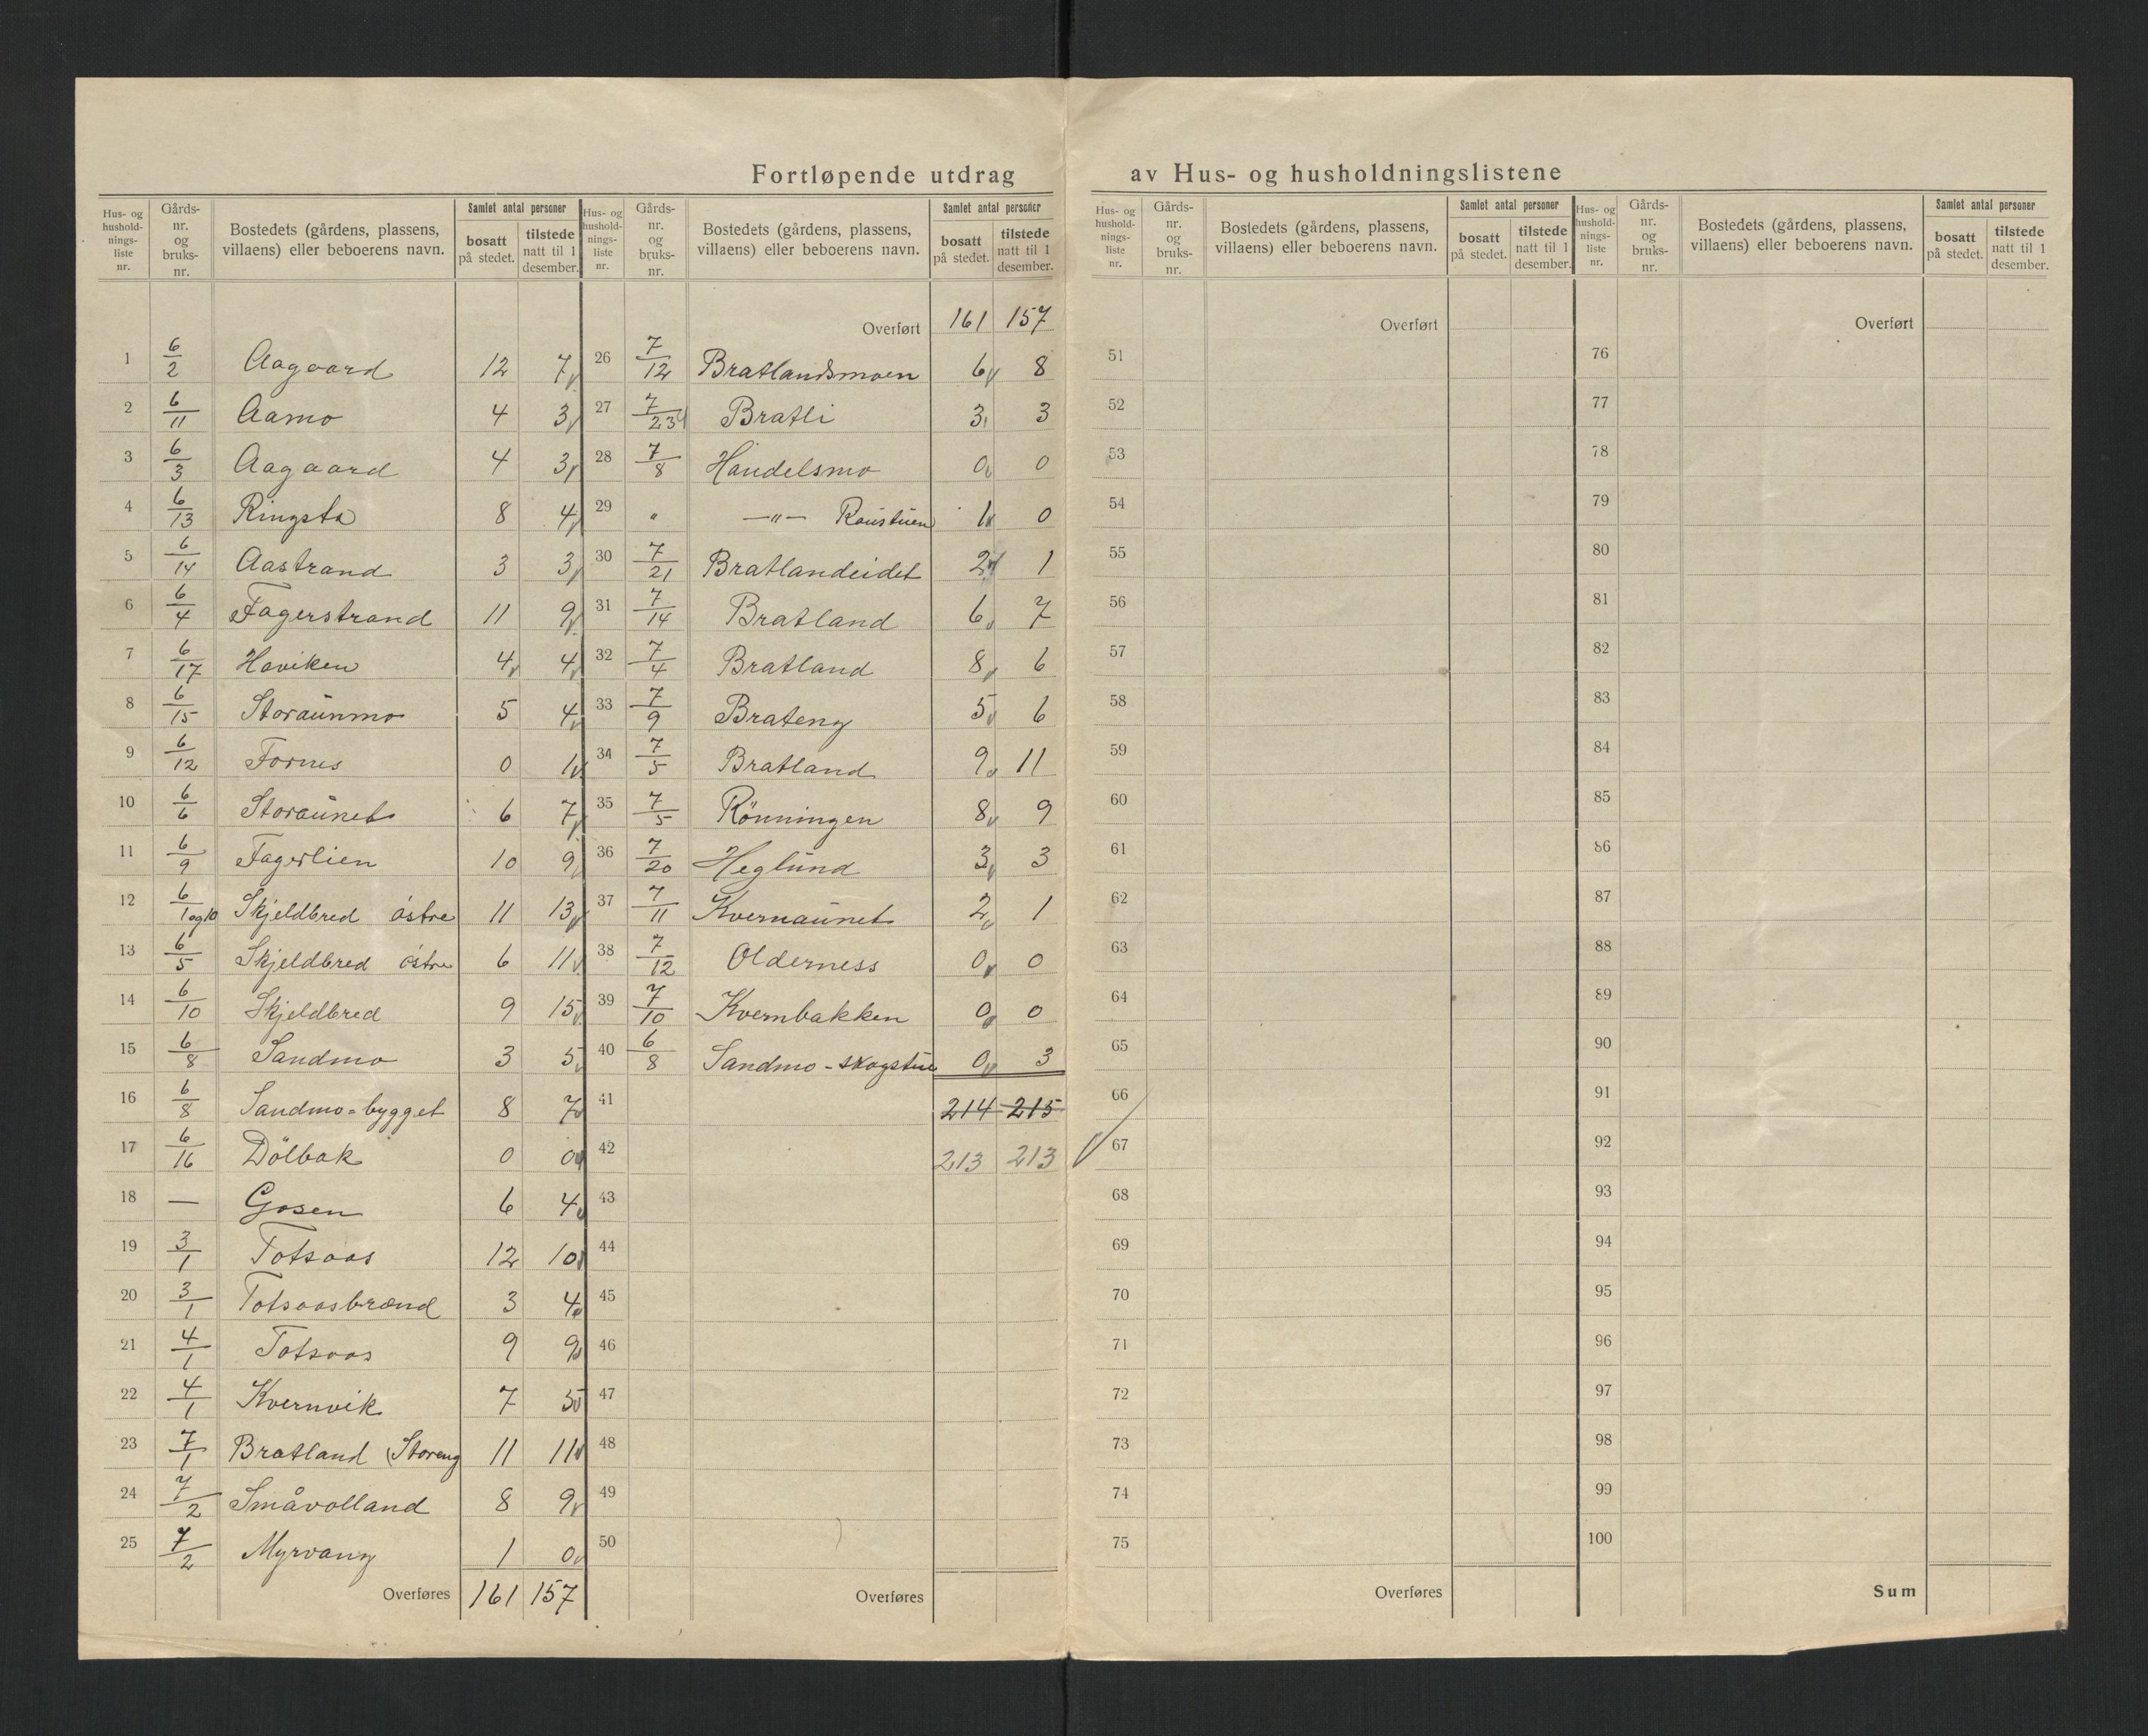 Fortløpende utdrag av Hus- og husholdningslistene
Hus- og hushold-nings-liste nr. Gårds-nr. og bruks-nr. Bostedets (gårdens, plassens, villaens) eller beboerens navn. Samlet antal personer bosatt på stedet. tilstede natt til 1 desember.
1 6/2 Aagaard 12 7
2 6/11 Aamo 4 3
3 6/3 Aagaard 4 3
4 6/13 Ringsta 8 4
5 6/14 Aastrand 3 3
6 6/4 Fagerstrand 11 9
7 6/17 Haviken 4 4
8 6/15 Storaunmo 5 4
9 6/12 Fornes 0 1
10 6/6 Storaunet 6 7
11 6/9 Fagerlien 10 9
12 6/1 og 10 Skjeldbred östre 11 13
13 6/5 Skjeldbred östre 6 11
14 6/10 Skjeldbred 9 15
15 6/8 Sandmo 3 5
16 6/8 Sandmo=bygget 8 7
17 6/16 Dölbak 0 0
18 — Gosen 6 4
19 3/1 Totsaas 12 10
20 3/1 Totsaasbrænd 3 4
21 4/1 Totsaas 9 9
22 4/1 Kvernvik 7 5
23 7/1 Bratland (Storeng 11 11
24 7/2 Småvolland 8 9
25 7/2 Myrvang 1 0
Overføres 161 157
Hus- og hushold-nings-liste nr. Gårds-nr. og bruks-nr. Bostedets (gårdens, plassens, villaens) eller beboerens navn. Samlet antal personer bosatt på stedet. tilstede natt til 1 desember.
Overført 161 157
26 7/12 Bratlandsmoen 6 8
27 7/23 Bratli 3 3
28 7/8 Handelsmo 0 0
29 " —"— Raustuen 1 0
30 7/21 Bratlandeidet 2 1
31 7/14 Bratland 6 7
32 7/4 Bratland 8 6
33 7/9 Brateng 5 6
34 7/5 Bratland 9 11
35 7/5 Rönningen 8 9
36 7/20 Heglund 3 3
37 7/11 Kvernaunet 2 1
38 7/12 Olderness 0 0
39 7/10 Kvernbakken 0 0
40 6/8 Sandmo-skogstue 0 3
41 214 215
42 213 213
43
44
45
46
47
48
49
50
Overføres
Hus- og hushold-nings-liste nr. Gårds-nr. og bruks-nr. Bostedets (gårdens, plassens, villaens) eller beboerens navn. Samlet antal personer bosatt på stedet. tilstede natt til 1 desember.
Overført
51
52
53
54
55
56
57
58
59
60
61
62
63
64
65
66
67
68
69
70
71
72
73
74
75
Overføres
Hus- og hushold-nings-liste nr. Gårds-nr. og bruks-nr. Bostedets (gårdens, plassens, villaens) eller beboerens navn. Samlet antal personer bosatt på stedet. tilstede natt til 1 desember.
Overført
76
77
78
79
80
81
82
83
84
85
86
87
88
89
90
91
92
93
94
95
96
97
98
99
100
Sum